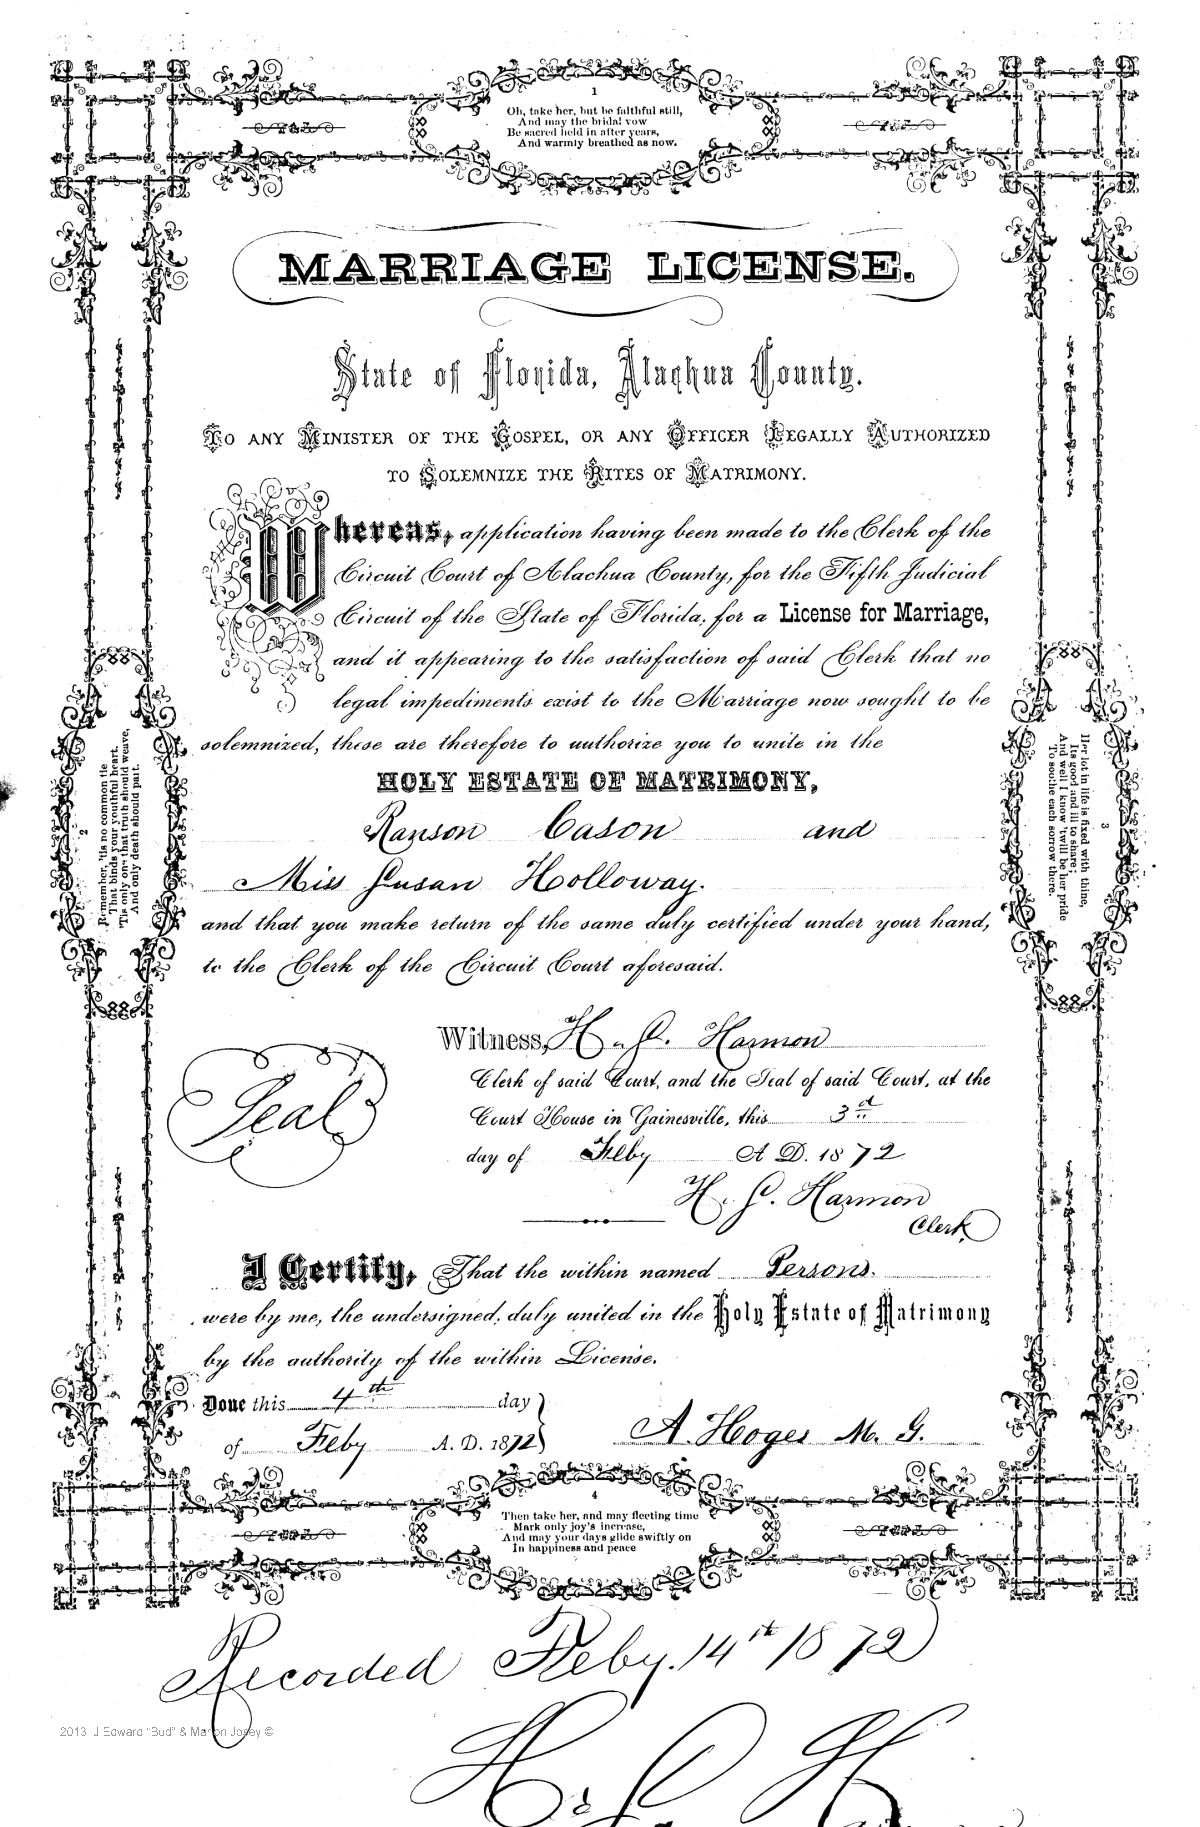 1
Oh, take her, but be faithful still,
And may the bridal vow
Be sacred held in after years,
And warmly breathed as now.
MARRIAGE LICENSE.
State of Florida, Alachua County.
TO ANY MINISTER OF THE GOSPEL, OR ANY OFFICER LEGALLY AUTHORIZED
TO SOLEMNIZE THE RITES OF MATRIMONY.
Whereas, application having been made to the Clerk of the
Circuit Court of Alachua County, for the Fifth Judicial
Circuit of the State of Florida, for a License for Marriage,
and it appearing to the satisfaction of said Clerk that no
legal impediments exist to the Marriage now sought to be
solemnized, these are therefore to authorize you to unite in the
HOLY ESTATE OF MATRIMONY,
Ranson Cason and
Miss Susan Holloway.
and that you make return of the same duly certified under your hand,
to the Clerk of the Circuit Court aforesaid.
2
Remember, 'tis no common tie
That binds your youthful heart,
'Tis only one that truth should weave,
And only death should part.
3
Her lot in life is fixed with thine,
Its good and ill to share;
And well I know 'twill be her pride
To soothe each sorrow there.
Seal
Witness, H. C. Harmon
Clerk of said Court, and the Seal of said Court, at the
Court House in Gainesville, this 3d
day of Feby A D. 1872
H. C. Harmon
Clerk
I Certify, That the within named Persons.
were by me, the undersigned, duly united in the Holy Estate of Matrimony
by the authority of the within License.
Done this 4th day
of Feby A. D. 1872
A. Hoges M. G.
4
Then take her, and may fleeting time
Mark only joy's increase,
And may your days glide swiftly on
In happiness and peace
Recorded Feby. 14th 1872
2013 J Edward "Bud" & Marion Josey ©
H. C. H